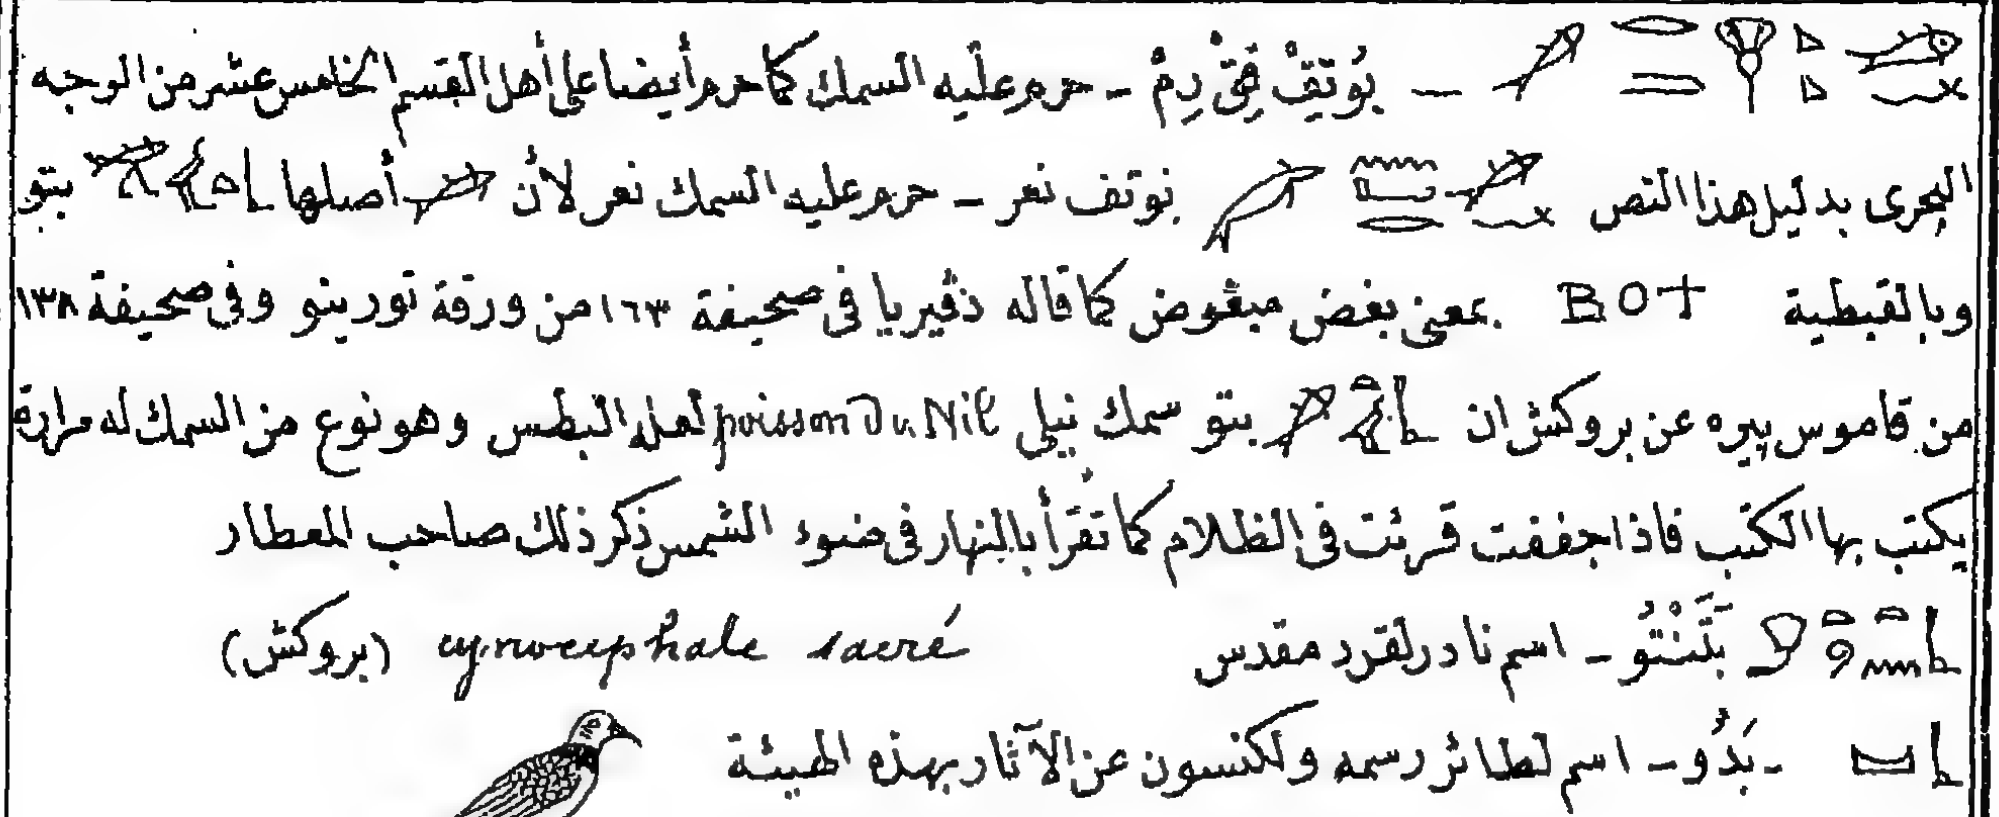 ـ بُوتِقْ فِقْ رِمْ ـ حرم عليه السمك كما حرم أيضا على أهل القسم الخامس عشر من الوجه
البحرى بدليل هذا النص بوتف نعر ـ حرم عليه السمك نعر لأن أصلها بتو
وبالقبطية BOT بمعنى بغض مبغوض كما قاله دڤيريا فى صحيفة ١٦٣ من ورقة تورينو وفى صحيفة ١٣٨
من قاموس پيره عن بروكش ان بتو سمك نيلى poisson du Nil لعله البطس وهو نوع من السمك له مرارة
يكتب بها الكتب فاذا جففت قرئت فى الظلام كما تقرأ بالنهار فى ضوء الشمس ذكر ذلك صاحب المعطار
بَتَنْتُو ـ اسم نادر لقرد مقدس cynocephale sacré (بروكش)
ـ بَدُو ـ اسم لطائر رسمه ولكنسون عن الآثار بهذه الهيئة